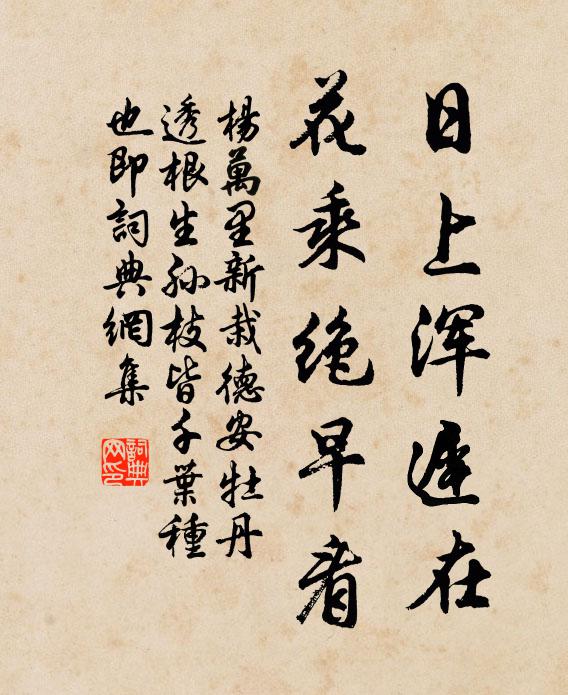 日上浑遲在
花乘绝早看
楊萬里新栽德安牡丹
透根生孙枝皆千葉種
也即詞典網集
詞典网印